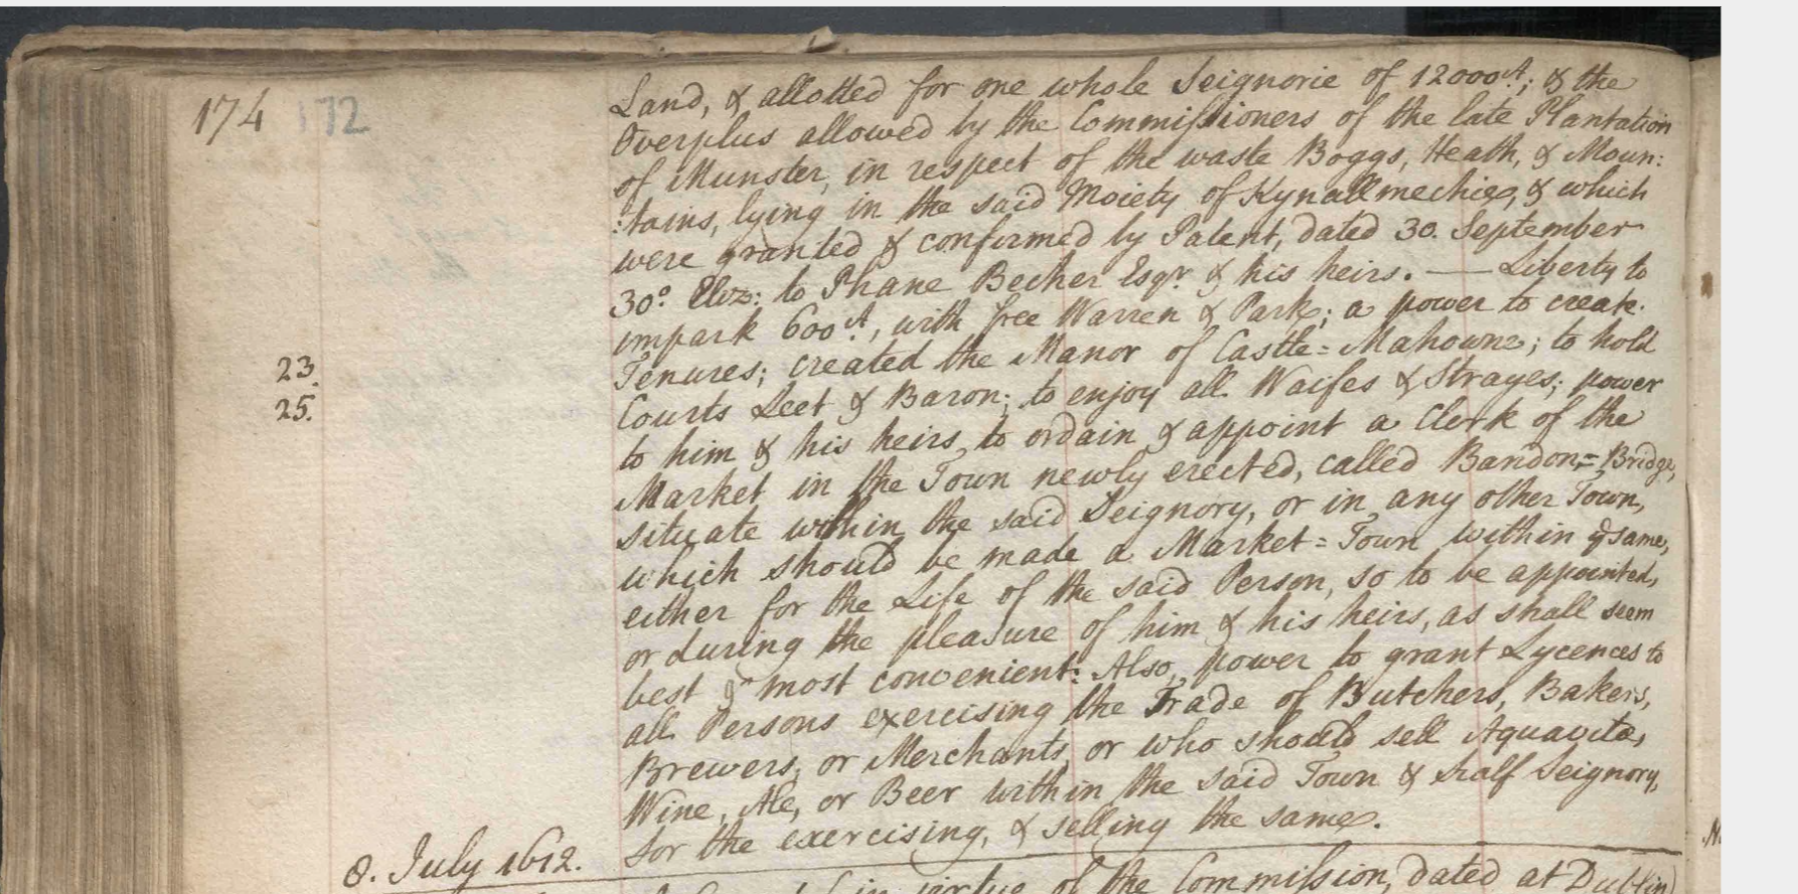 174 172
Land, & allotted for one whole Seignorie of 12000A.; & the
Overplus allowed by the Commissioners of the late Plantation
of Munster, in respect of the waste Boggs, Heath, & Moun:
:tains, lying in the said Moiety of Kynallmechie, & which
were granted & confirmed by Patent, dated 30. September
30º. Eliz: to Phane Becher Esqr. & his heirs. — Liberty to
impark 600A., with free Warren & Park; a power to create
23. Tenures; created the Manor of Castle=Mahowne; to hold
25. Courts Leet & Baron; to enjoy all Waifes & Strayes; power
to him & his heirs, to ordain & appoint a Clerk of the
Market in the Town newly erected, called Bandon=Bridge,
situate within the said Seignory, or in any other Town,
which should be made a Market=Town within ye same,
either for the Life of the said Person, so to be appointed,
or during the pleasure of him & his heirs, as shall seem
best & most convenient: Also, power to grant Lycences to
all Persons exercising the Trade of Butchers, Bakers,
Brewers, or Merchants, or who should sell Aquavite,
Wine, Ale, or Beer within the said Town & half Seignory,
for the exercising, & selling the same.
8. July 1612.
in virtue of the Commission, dated at Dublin